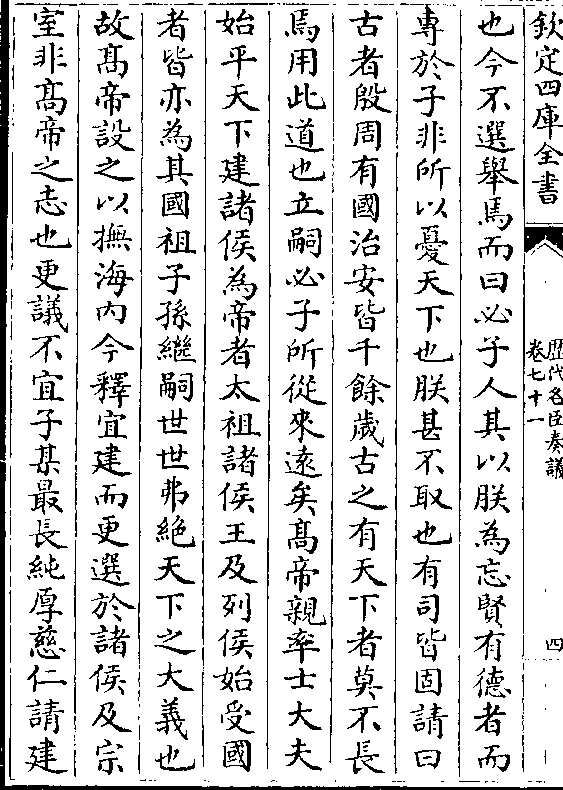 欽定四庫全書
歴代名臣奏議
卷七十一
四
也今不選舉焉而曰必子人其以朕為忘賢有德者而
専於子非所以憂天下也朕甚不取也有司皆固請曰
古者殷周有國治安皆千餘歲古之有天下者莫不長
焉用此道也立嗣必子所從來遠矣髙帝親率士大夫
始平天下建諸侯為帝者太祖諸侯王及列侯始受國
者皆亦為其國祖子孫繼嗣世世弗絶天下之大義也
故髙帝設之以撫海内今釋宜建而更選於諸侯及宗
室非髙帝之志也更議不宜子某最長純厚慈仁請建